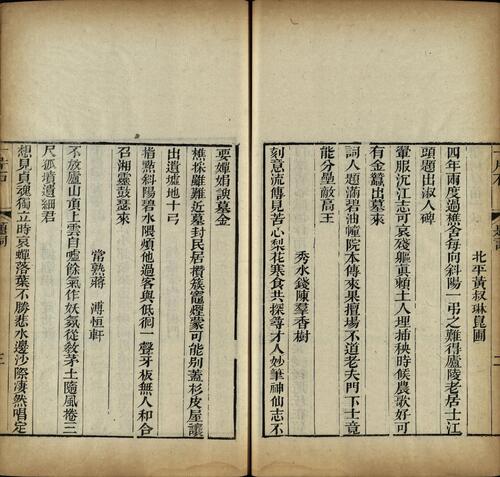 北平黃叔琳崑圃
四年兩度過樵舍每向斜陽一弔之難得廬陵老居士江
頭題出淑人碑
鞶服沉江志可哀殘軀眞賴土人埋插秧時候農歌好可
有金蠶出墓來
詞人題滿碧油幢院本傳來果擅塲不道老夫門下士竟
能分壘敵高王
秀水錢陳羣香樹
刻意流傳見苦心梨花寒食共探尋才人妙筆神仙志不
要嬋娟諛墓金
樵採雖難近墓封民居攢簇竈煙蒙可能別蓋杉皮屋讓
出遺墟地十弓
指點斜陽碧水隈煩他過客與低徊一聲牙板無人和合
召湘靈鼓瑟來
常熟蔣溥恒軒
不放廬山頂上雲自噓餘氣作妖氛從敎茅土隨風捲三
尺孤墳遺細君
想見貞魂獨立時哀蟬落葉不勝悲水邊沙際凄然唱定
一片石
題詞
二
一片石
題詞
三